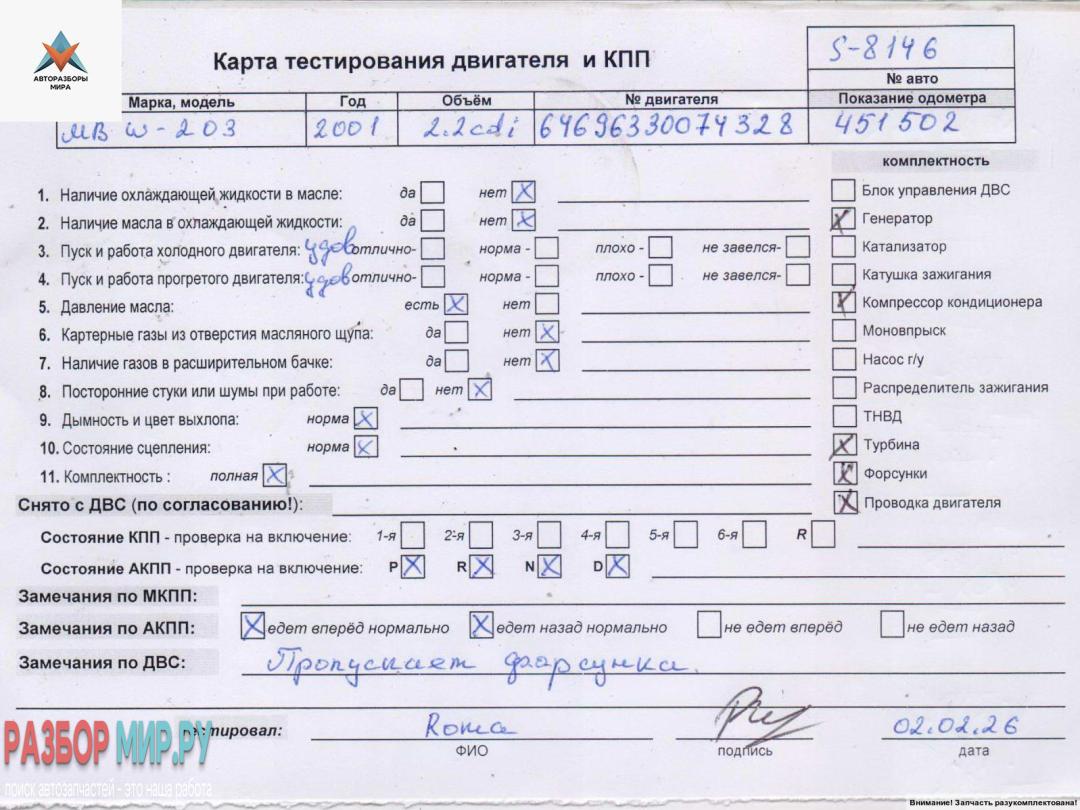 АВТОРАЗБОРЫ
МИРА
Карта тестирования двигателя и КПП
S-8146
№ авто
Марка, модель Год Объём № двигателя Показание одометра
МВ W-203 2001 2.2cdi 64696330074328 451502
комплектность
1. Наличие охлаждающей жидкости в масле: да нет X
2. Наличие масла в охлаждающей жидкости: да нет X
3. Пуск и работа холодного двигателя: удов отлично- норма - плохо - не завелся-
4. Пуск и работа прогретого двигателя: удов отлично- норма - плохо - не завелся-
5. Давление масла: есть X нет
6. Картерные газы из отверстия масляного щупа: да нет X
7. Наличие газов в расширительном бачке: да нет X
8. Посторонние стуки или шумы при работе: да нет X
9. Дымность и цвет выхлопа: норма X
10. Состояние сцепления: норма X
11. Комплектность : полная X
Блок управления ДВС
X Генератор
Катализатор
Катушка зажигания
X Компрессор кондиционера
Моновпрыск
Насос г/у
Распределитель зажигания
ТНВД
X Турбина
X Форсунки
X Проводка двигателя
Снято с ДВС (по согласованию!):
Состояние КПП - проверка на включение: 1-я 2-я 3-я 4-я 5-я 6-я R
Состояние АКПП - проверка на включение: P X R X N X D X
Замечания по МКПП:
Замечания по АКПП: X едет вперёд нормально X едет назад нормально не едет вперёд не едет назад
Замечания по ДВС: Пропускает форсунка.
тестировал: Рома 02.02.26
ФИО подпись дата
РАЗБОР МИР.РУ
поиск автозапчастей - это наша работа
Внимание! Запчасть разукомплектована!